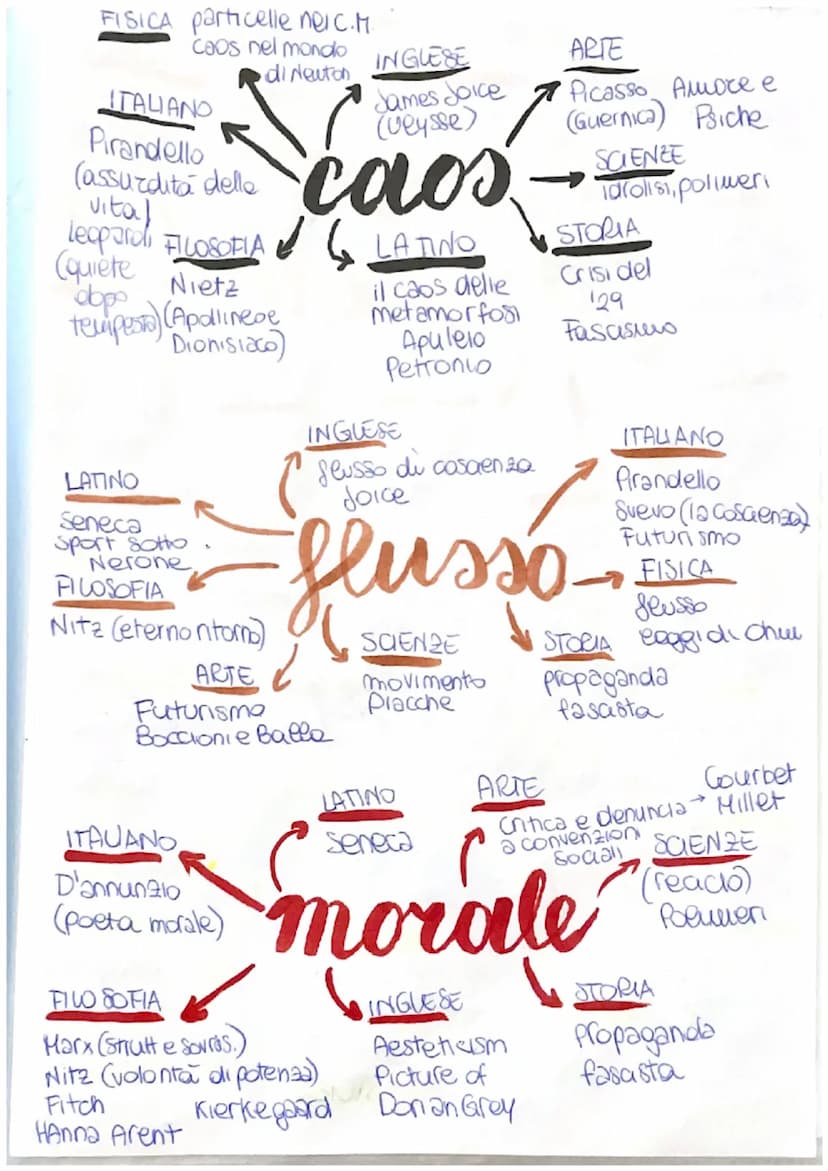 FISICA particelle nei C.M.
caos nel mondo
di Newton
INGLESE
James Joice
(Ulysse)
ARTE
Picasso Amore e
(Guernica) Psiche
ITALIANO
Pirandello
(assurdità della
vita)
leopardi
(quiete
dopo
tempesta)
caos
SCIENZE
idrolisi, polimeri
FILOSOFIA
Nietz
(Apollineo e
Dionisiaco)
LATINO
il caos delle
metamorfosi
Apuleio
Petronio
STORIA
Crisi del
'29
Fascismo
INGLESE
flusso di coscienza
Joice
ITALIANO
Pirandello
Svevo (la coscienza)
Futurismo
LATINO
Seneca
Sport sotto
Nerone
flusso
FISICA
flusso
leggi di Ohm
FILOSOFIA
Nitz (eterno ritorno)
ARTE
Futurismo
Boccioni e Balla
SCIENZE
movimento
placche
STORIA
propaganda
fascista
LATINO
Seneca
ARTE
Critica e denuncia → Courbet
a convenzioni Millet
sociali
ITALIANO
D'annunzio
(poeta morale)
SCIENZE
(riciclo)
Polimeri
morale
FILOSOFIA
Marx (strutt e sovras.)
Nitz (volontà di potenza)
Fitch Kierkegaard
HAnna Arent
INGLESE
Aesteticism
Picture of
Dorian Grey
STORIA
Propaganda
fascista